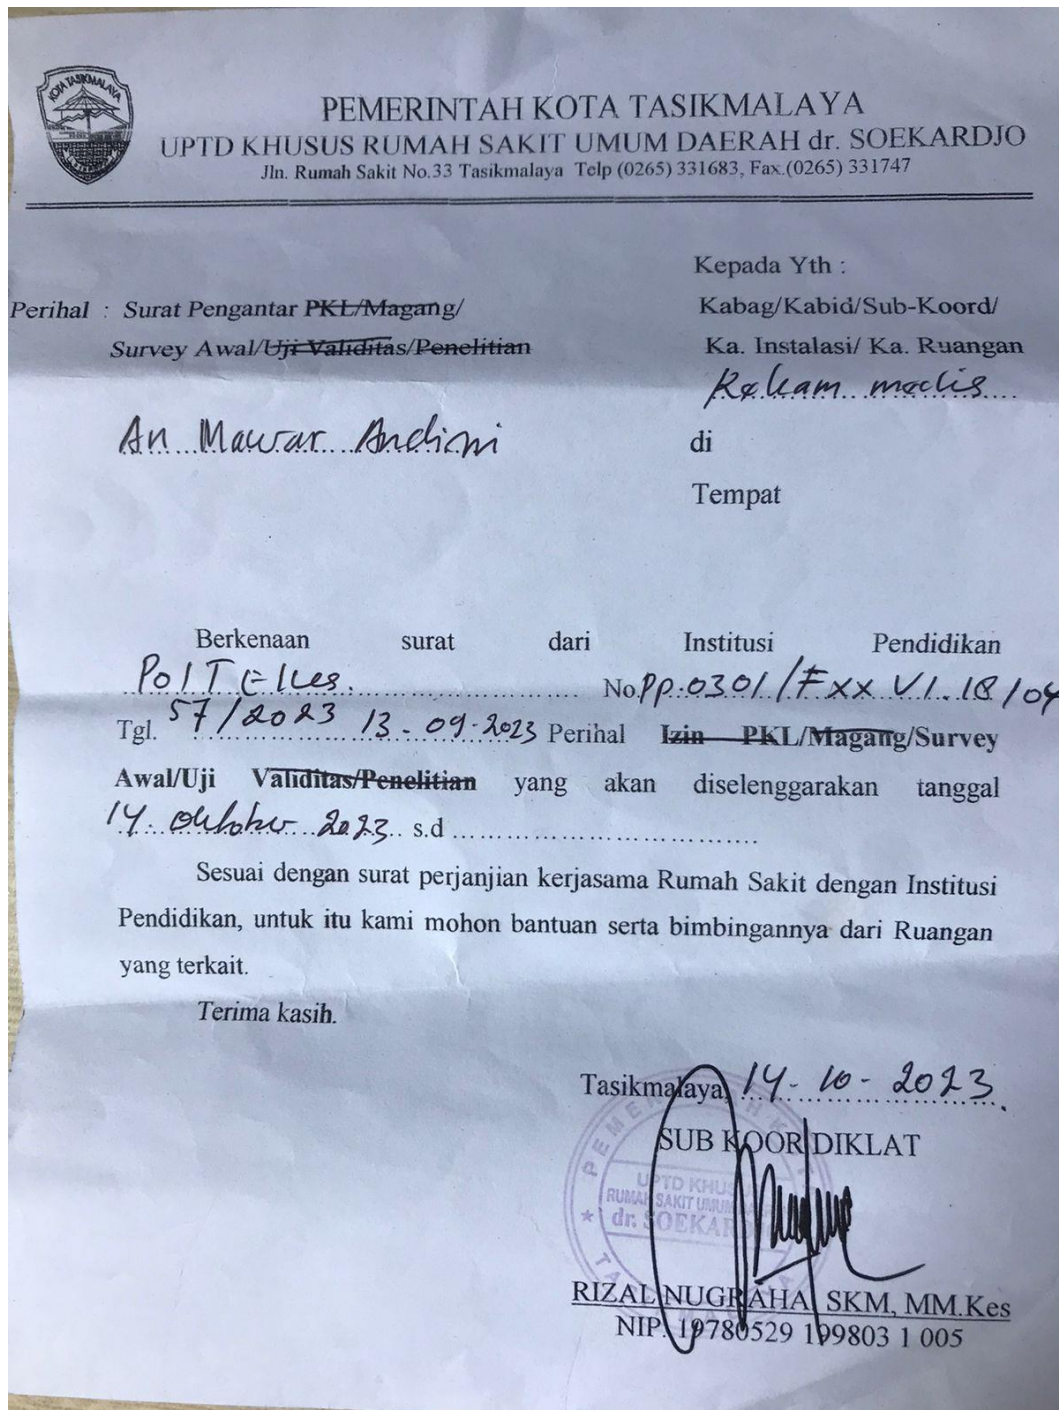 KOTA TASIKMALAYA
PEMERINTAH KOTA TASIKMALAYA
UPTD KHUSUS RUMAH SAKIT UMUM DAERAH dr. SOEKARDJO
Jln. Rumah Sakit No.33 Tasikmalaya Telp (0265) 331683, Fax.(0265) 331747
Kepada Yth :
Perihal : Surat Pengantar PKL/Magang/
Kabag/Kabid/Sub-Koord/
Survey Awal/Uji Validitas/Penelitian
Ka. Instalasi/ Ka. Ruangan
Rekam medis
An Mawar Andini
di
Tempat
Berkenaan surat dari Institusi Pendidikan
PolTEkes. No.PP.0301/FXXVI.18/04
Tgl. 57/2023 13-09-2023 Perihal Izin PKL/Magang/Survey
Awal/Uji Validitas/Penelitian yang akan diselenggarakan tanggal
14 Oktober 2023 s.d
Sesuai dengan surat perjanjian kerjasama Rumah Sakit dengan Institusi
Pendidikan, untuk itu kami mohon bantuan serta bimbingannya dari Ruangan
yang terkait.
Terima kasih.
Tasikmalaya, 14-10-2023
SUB KOOR DIKLAT
UPTD KHUSUS
RUMAH SAKIT UMUM
dr. SOEKARDJO
RIZAL NUGRAHA, SKM, MM.Kes
NIP. 19780529 199803 1 005